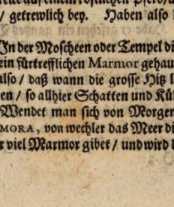 / getrewlich bey. Haben also
In der Moscheen oder Tempel di
ein fürtrefflichen Marmor gehau
also / daß wann die grosse Hitz
en / so allhier Schatten und Kü
Wendet man sich von Morge
MORA, von wechler das Meer di
r viel Marmor gibet / und wird